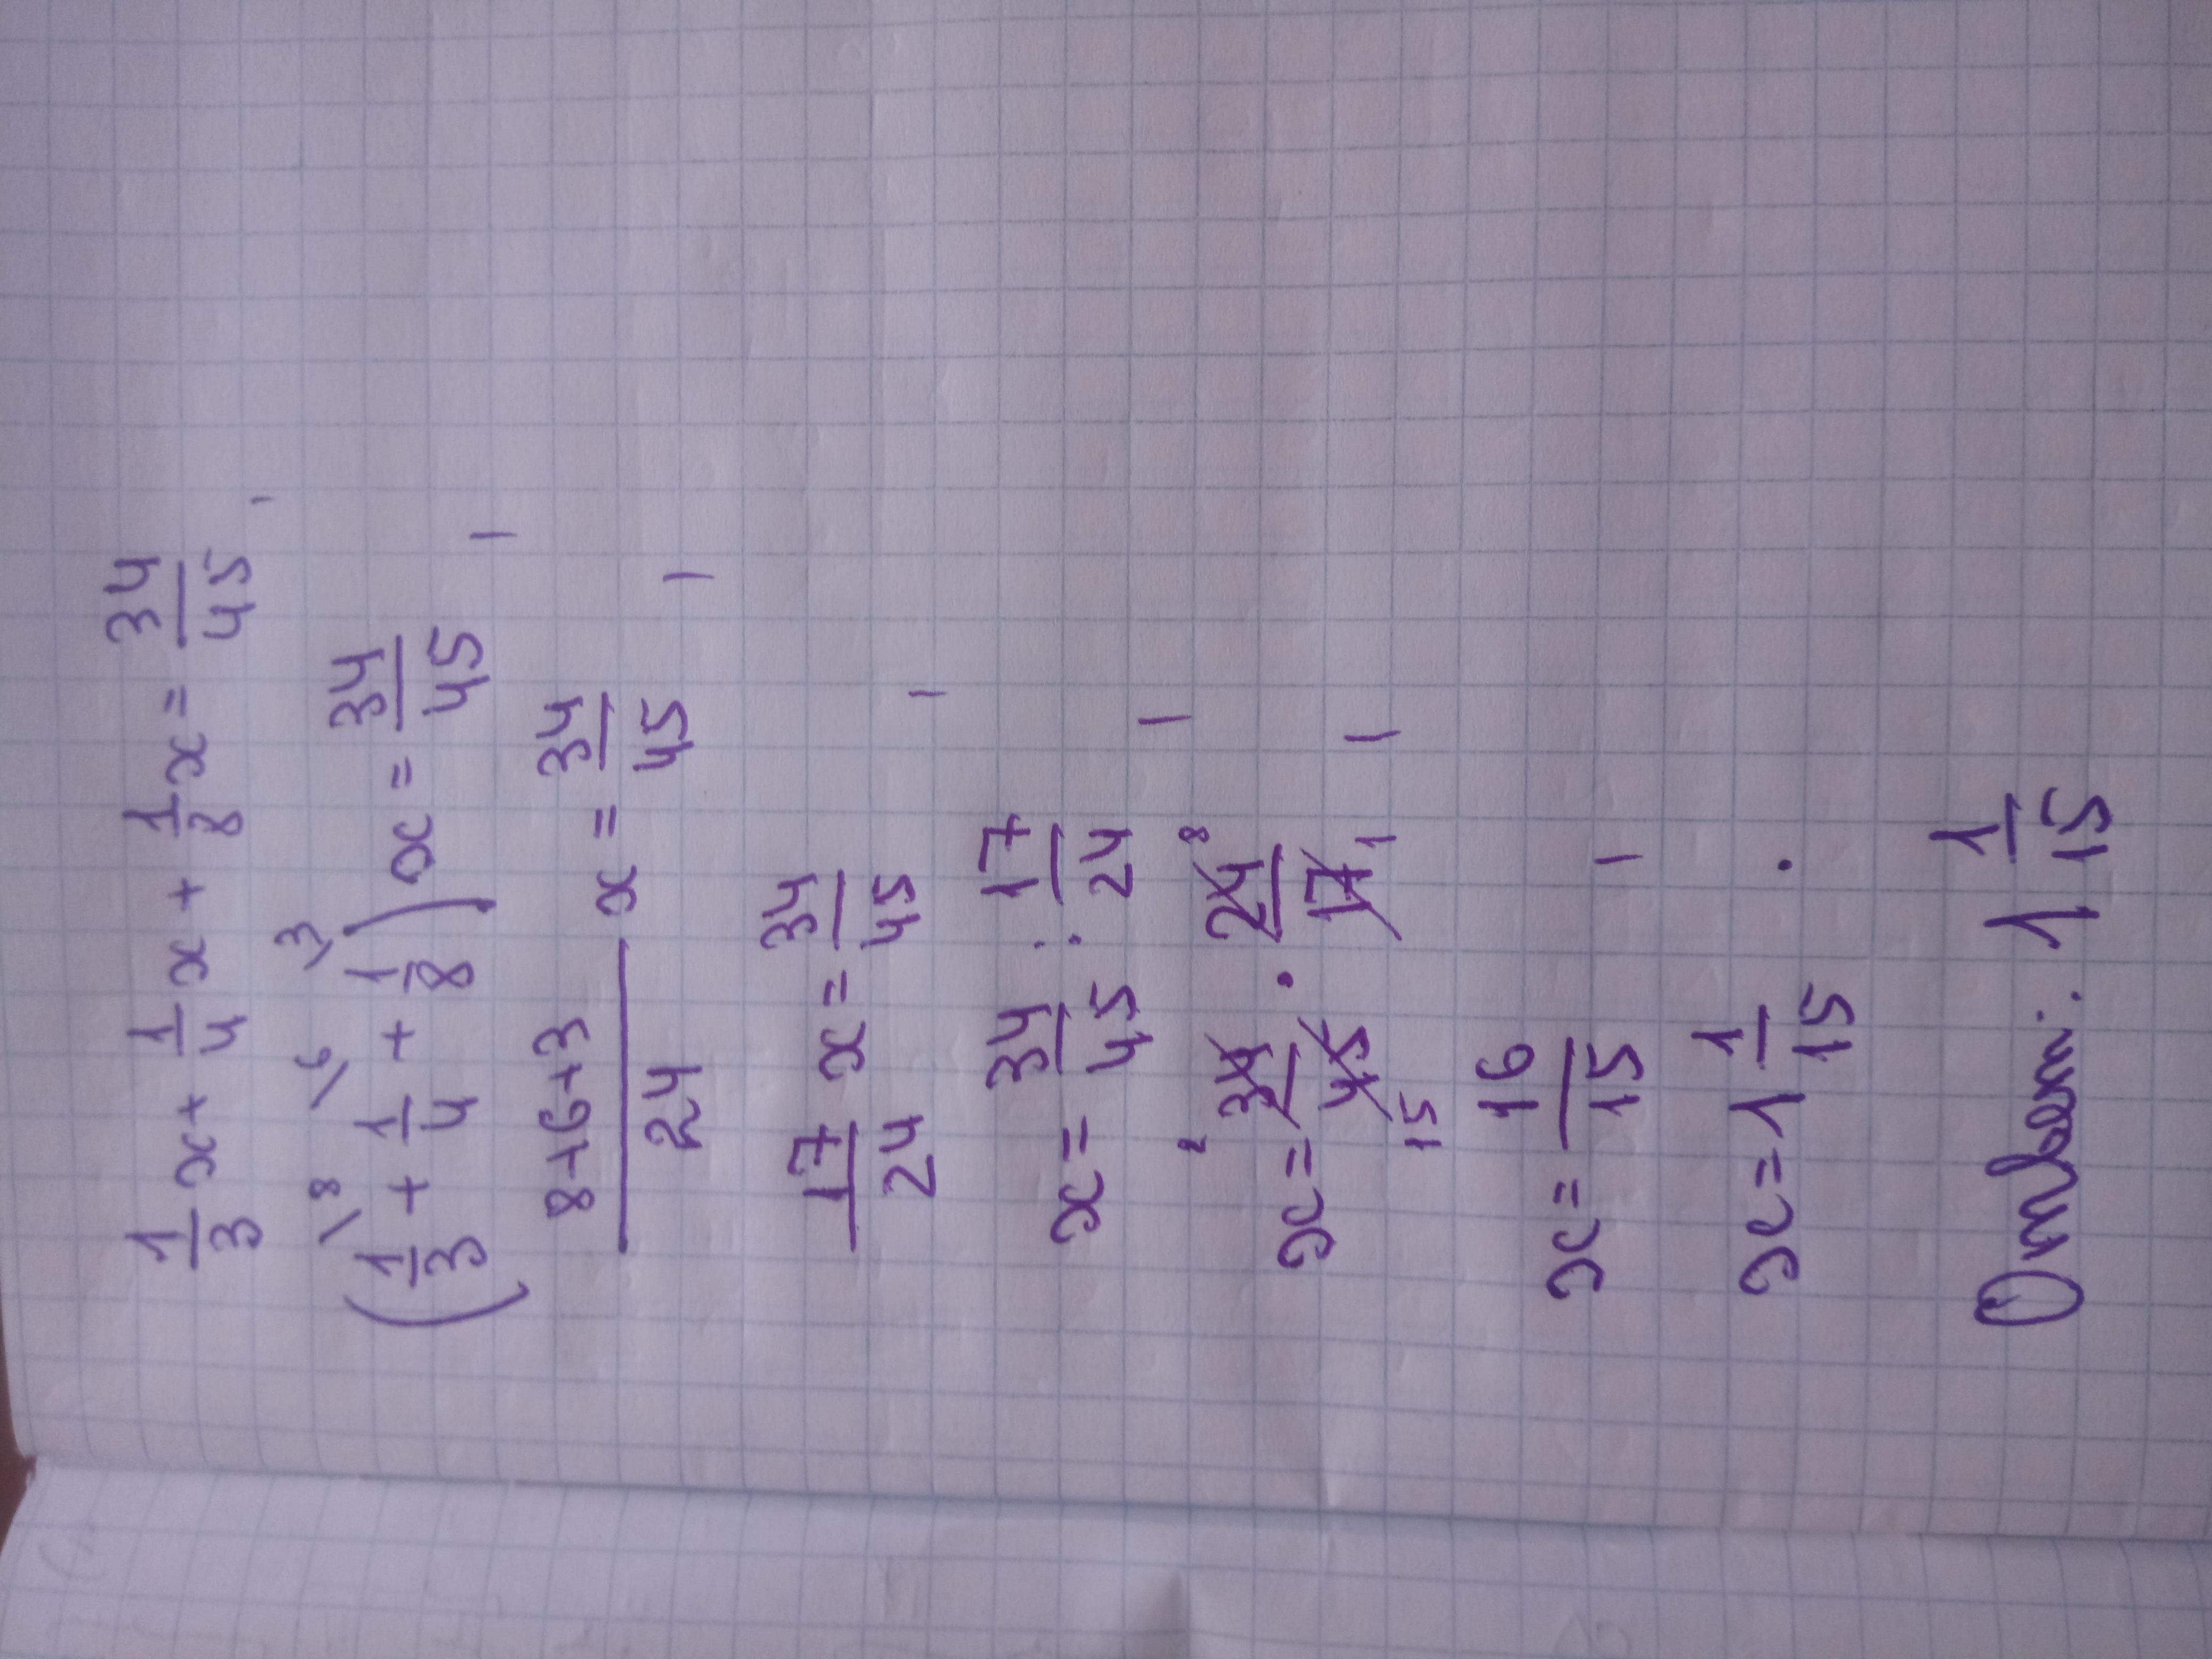 1/3 x + 1/4 x + 1/8 x = 34/45 ,
(1/3 \8 + 1/4 \6 + 1/8 \3) x = 34/45 ,
8+6+3/24 x = 34/45 ,
17/24 x = 34/45 ,
x = 34/45 : 17/24 ,
x = 2 34/45 15 · 24 8/17 1 ,
x = 16/15 ,
x = 1 1/15 .
Ответ: 1 1/15